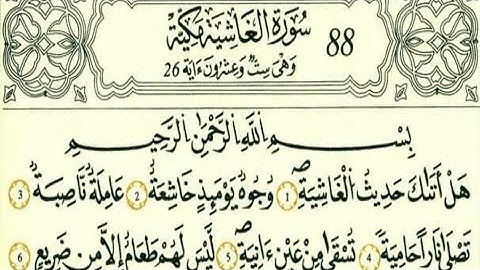 سُورَةُ الْغَاشِيَةِ مَكِّيَّةٌ 88
وَهِيَ سِتٌّ وَعِشْرُونَ ءَايَةً 26
بِسْمِ اللَّهِ الرَّحْمَٰنِ الرَّحِيمِ
هَلْ أَتَىٰكَ حَدِيثُ الْغَاشِيَةِ 1 وُجُوهٌ يَوْمَئِذٍ خَاشِعَةٌ 2 عَامِلَةٌ نَّاصِبَةٌ 3
تَصْلَىٰ نَارًا حَامِيَةً 4 تُسْقَىٰ مِنْ عَيْنٍ ءَانِيَةٍ 5 لَيْسَ لَهُمْ طَعَامٌ إِلَّا مِن ضَرِيعٍ 6